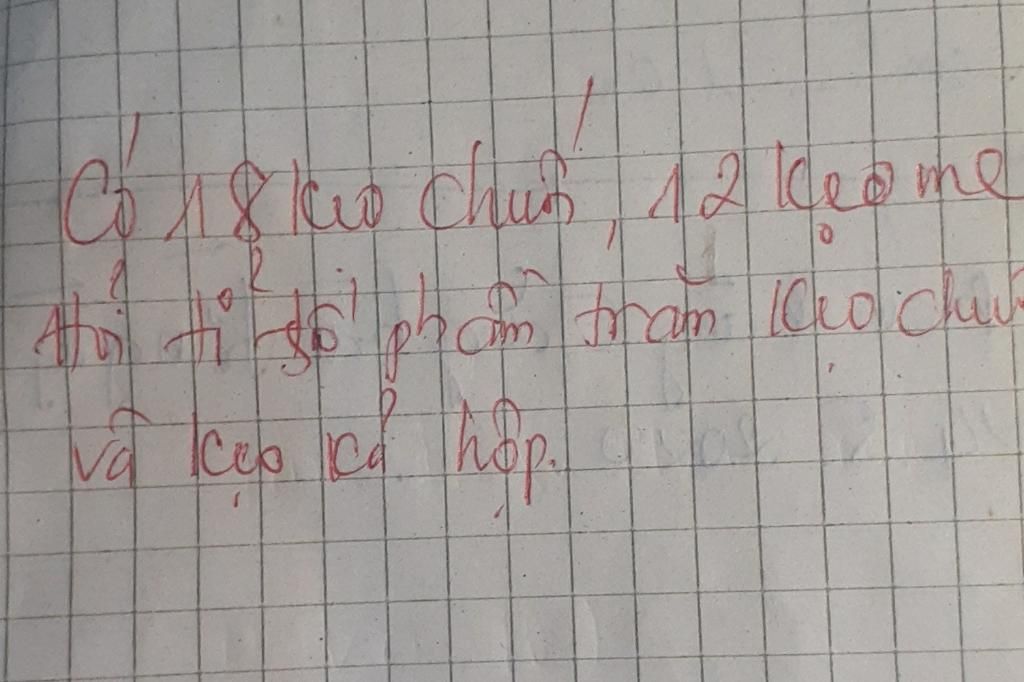 Có 18 kẹo chuối, 12 kẹo me
Hỏi tỉ số phần trăm kẹo chuối
và kẹo cả hộp.